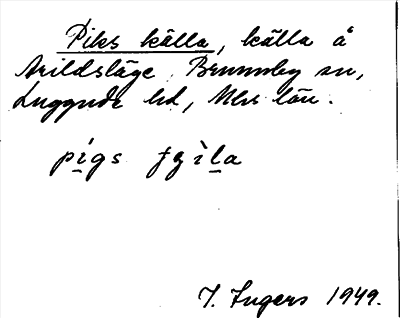 Piks källa, källa å
Arildsläge, Brunnby sn,
Luggude hd, Mlhs län.
pigs
I. Ingers 1949.